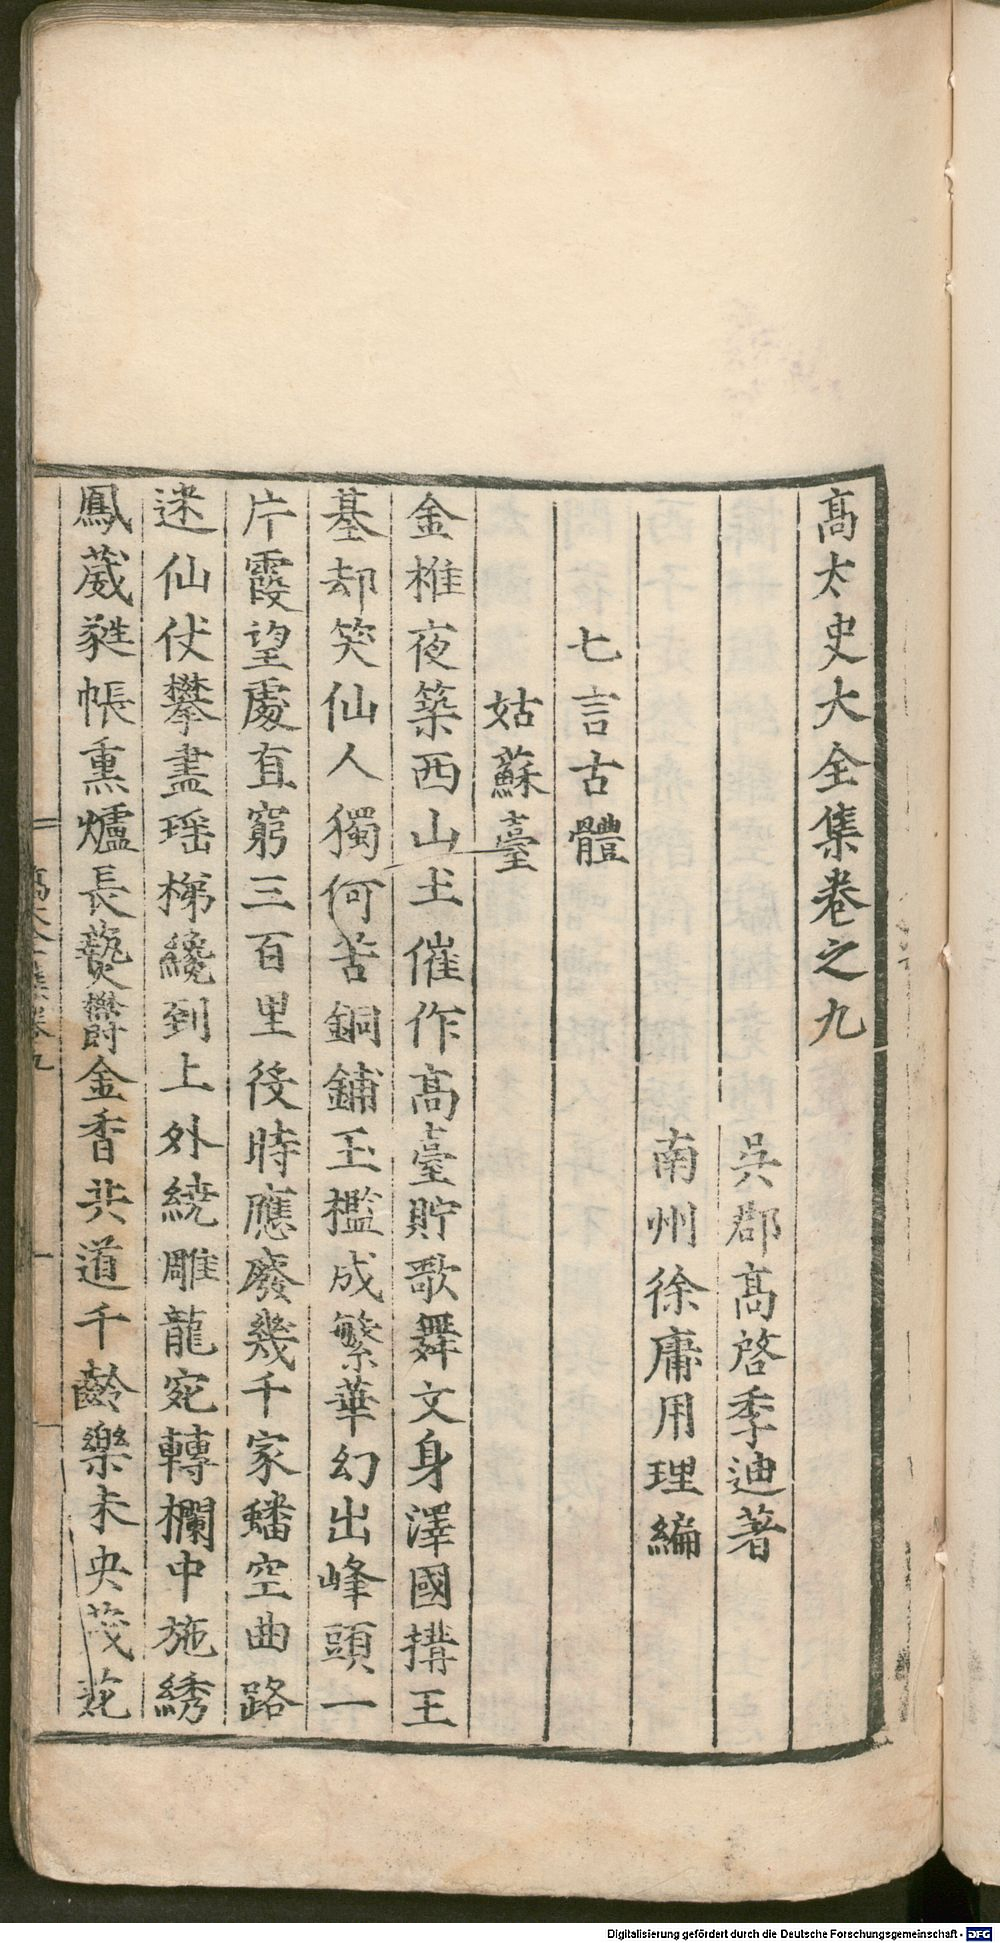 高太史大全集卷之九
吳郡高啓季迪著
南州徐庸用理編
七言古體
姑蘇臺
金椎夜築西山土催作高臺貯歌舞文身澤國搆王
基却笑仙人獨何苦銅鋪玉檻成繁華幻出峰頭一
片霞望處直窮三百里役時應廢幾千家蟠空曲路
迷仙仗攀盡瑶梯纔到上外繞雕龍宛轉欄中施綉
鳳葳蕤帳熏爐長爇欝金香共道千齡樂未央茂苑
高太全集卷九
一
Digitalisierung gefördert durch die Deutsche Forschungsgemeinschaft - DFG